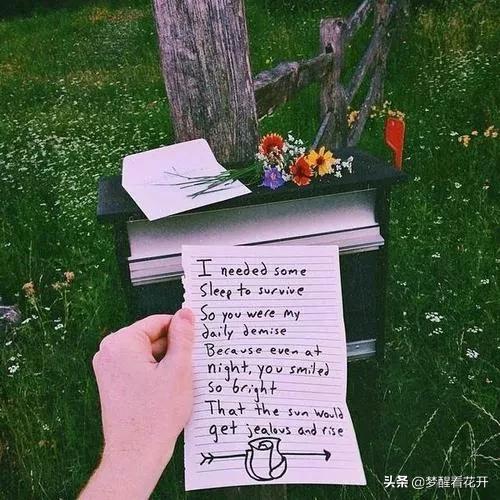 I needed some
Sleep to survive
So you were my
daily demise
Because even at
night, you smiled
so bright
That the sun would
get jealous and rise
头条 @梦醒看花开